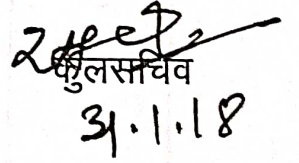 कुलसचिव
31.1.18